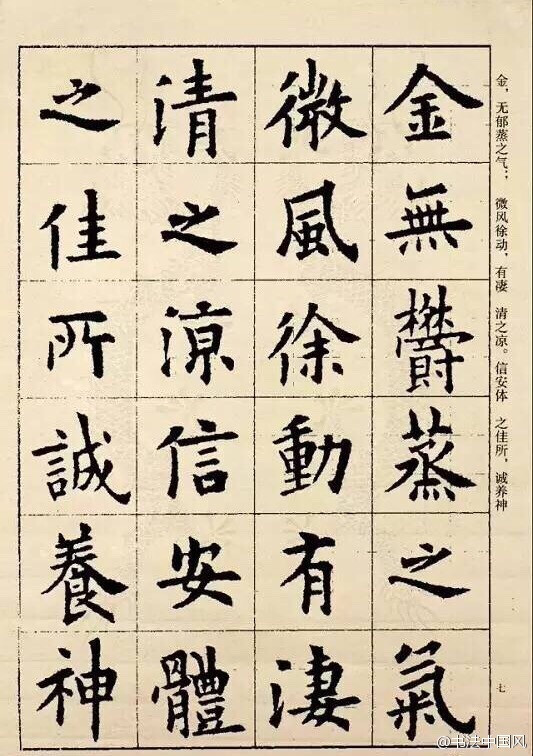 金無鬱蒸之氣
微風徐動有淒
清之涼信安體
之佳所誠養神
金，无郁蒸之气； 微风徐动，有凄 清之凉。信安体 之佳所，诚养神
七
@书法中国网